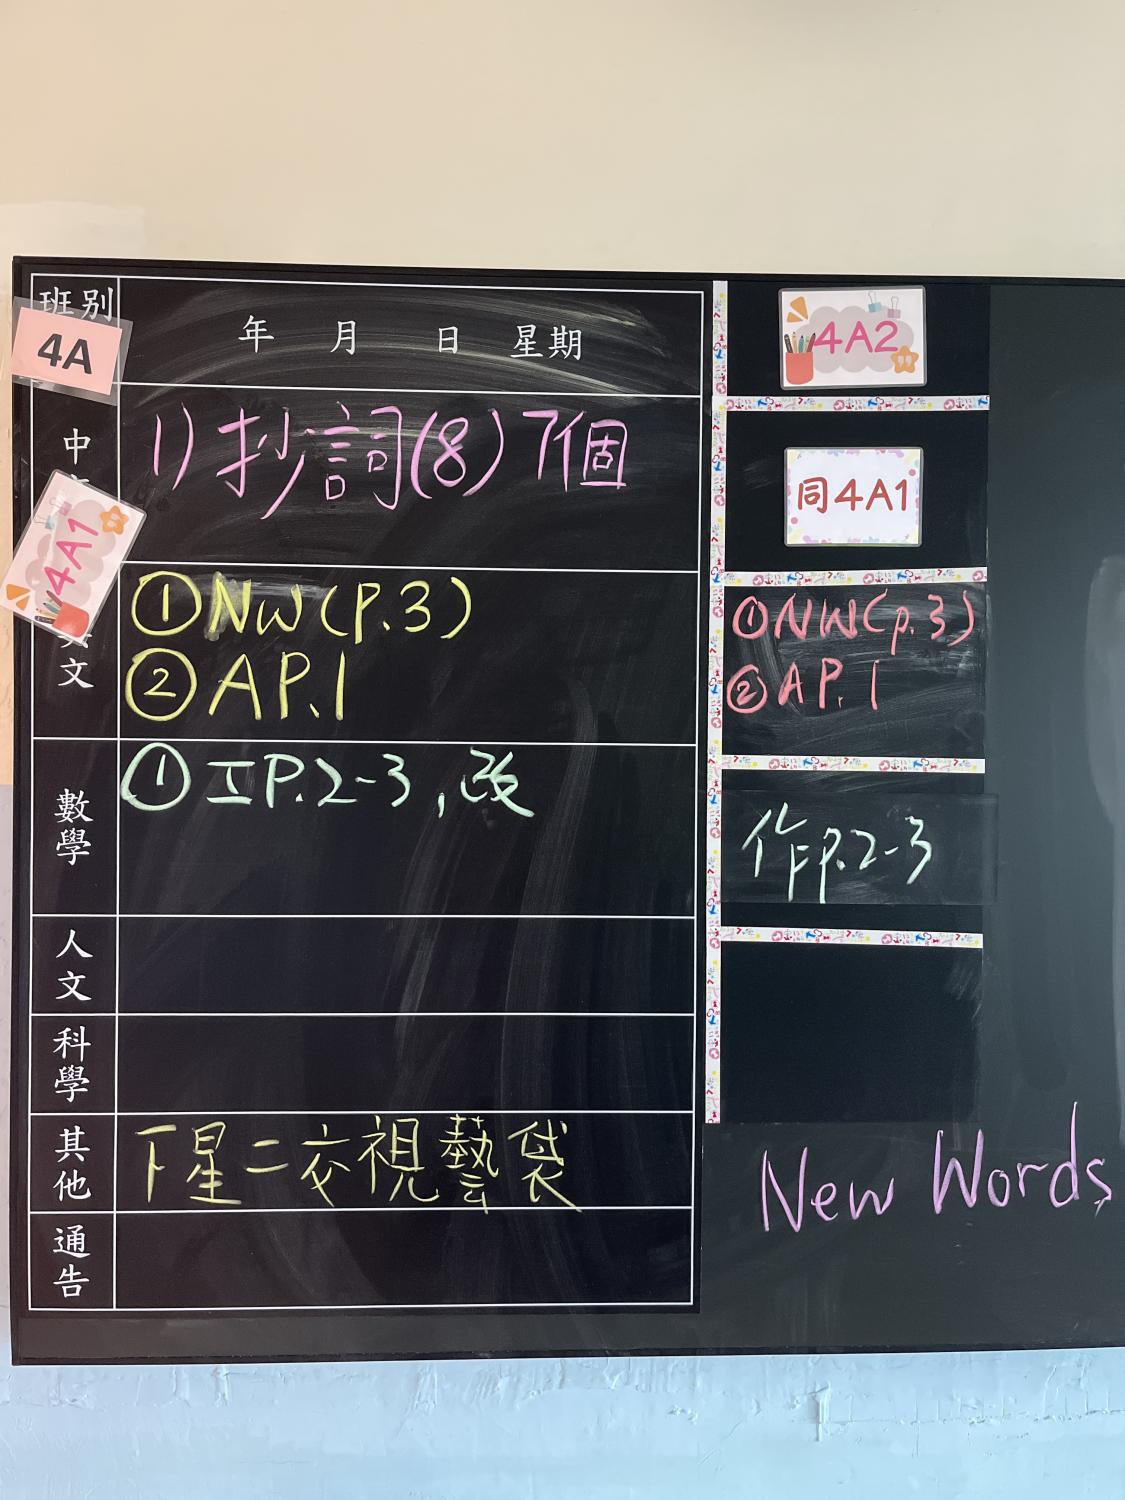 班別
4A
年 月 日 星期
中
1)抄詞(8)7個
4A1
文
①NW(P.3)
②AP.1
數學
①工P.2-3,改
人文
科學
其他
下星二交視藝袋
通告
4A2
同4A1
①NW(p.3)
②AP.1
作P.2-3
New Words